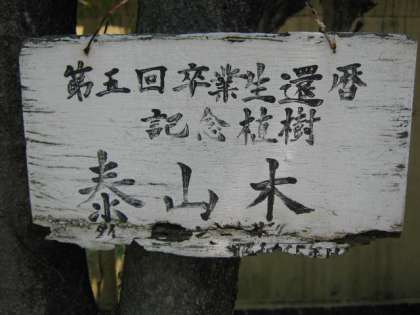 第五回卒業生還暦
記念植樹
泰山木